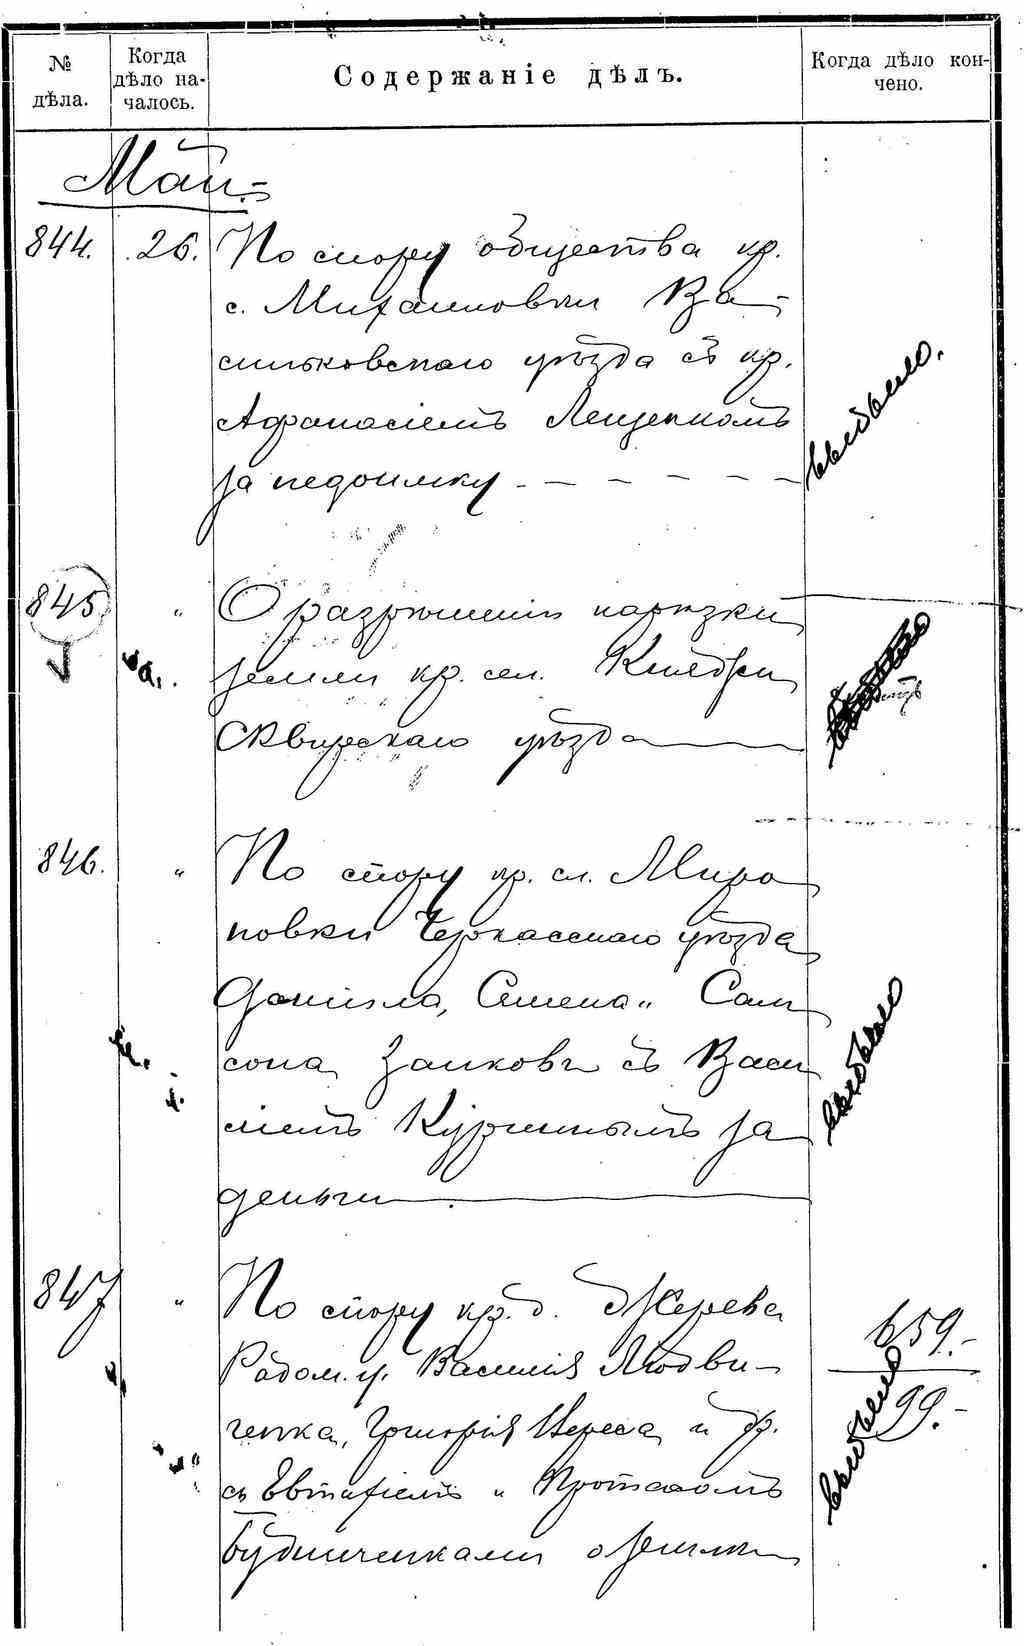 № дѣла.
Когда дѣло на-
чалось.
Содержаніе дѣлъ.
Когда дѣло кон-
чено.
Май.
844. 26. По спору общества кр.
с. Михайловки Ва-
сильковскаго уѣзда съ кр.
Афанасіемъ Лещенкомъ
за недоимку - - - - - -
выбыло.
845 „ О разрѣшеніи нарѣзки
земли кр. сел.
Сквирскаго уѣзда
846. „ По спору кр. сл. Миро
новки Черкасскаго уѣзда
Даніила, Семена и Сам
сона Заиковъ съ Васи
ліемъ за
деньги
выбыло
847 „ По спору кр. д. Жерева
Радом. у. Василія Людви-
ченка, Григорія Вереса и др.
съ Евтифіемъ и Протасомъ
Будниченками о землѣ
659.-
99.-
выбыло